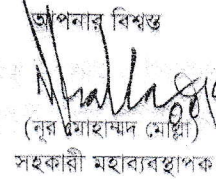 আপনার বিশ্বস্ত
(নূর মোহাম্মদ মোল্লা)
সহকারী মহাব্যবস্থাপক